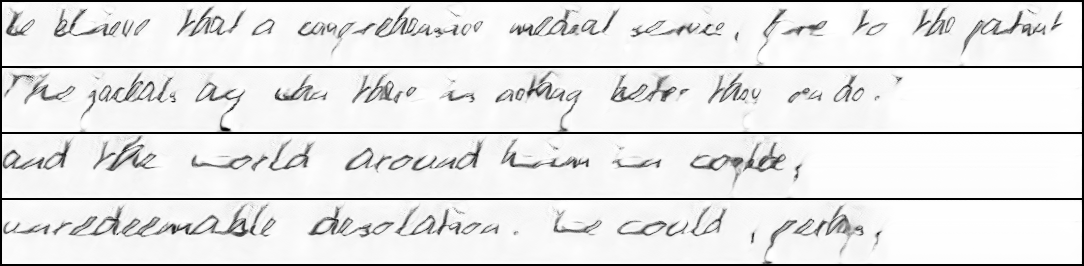 be believe that a comprehensive medical service, free to the patient
The jackals cry when there is nothing better they can do.'
and the world around him in complete,
unredeemable desolation. He could, perhaps,